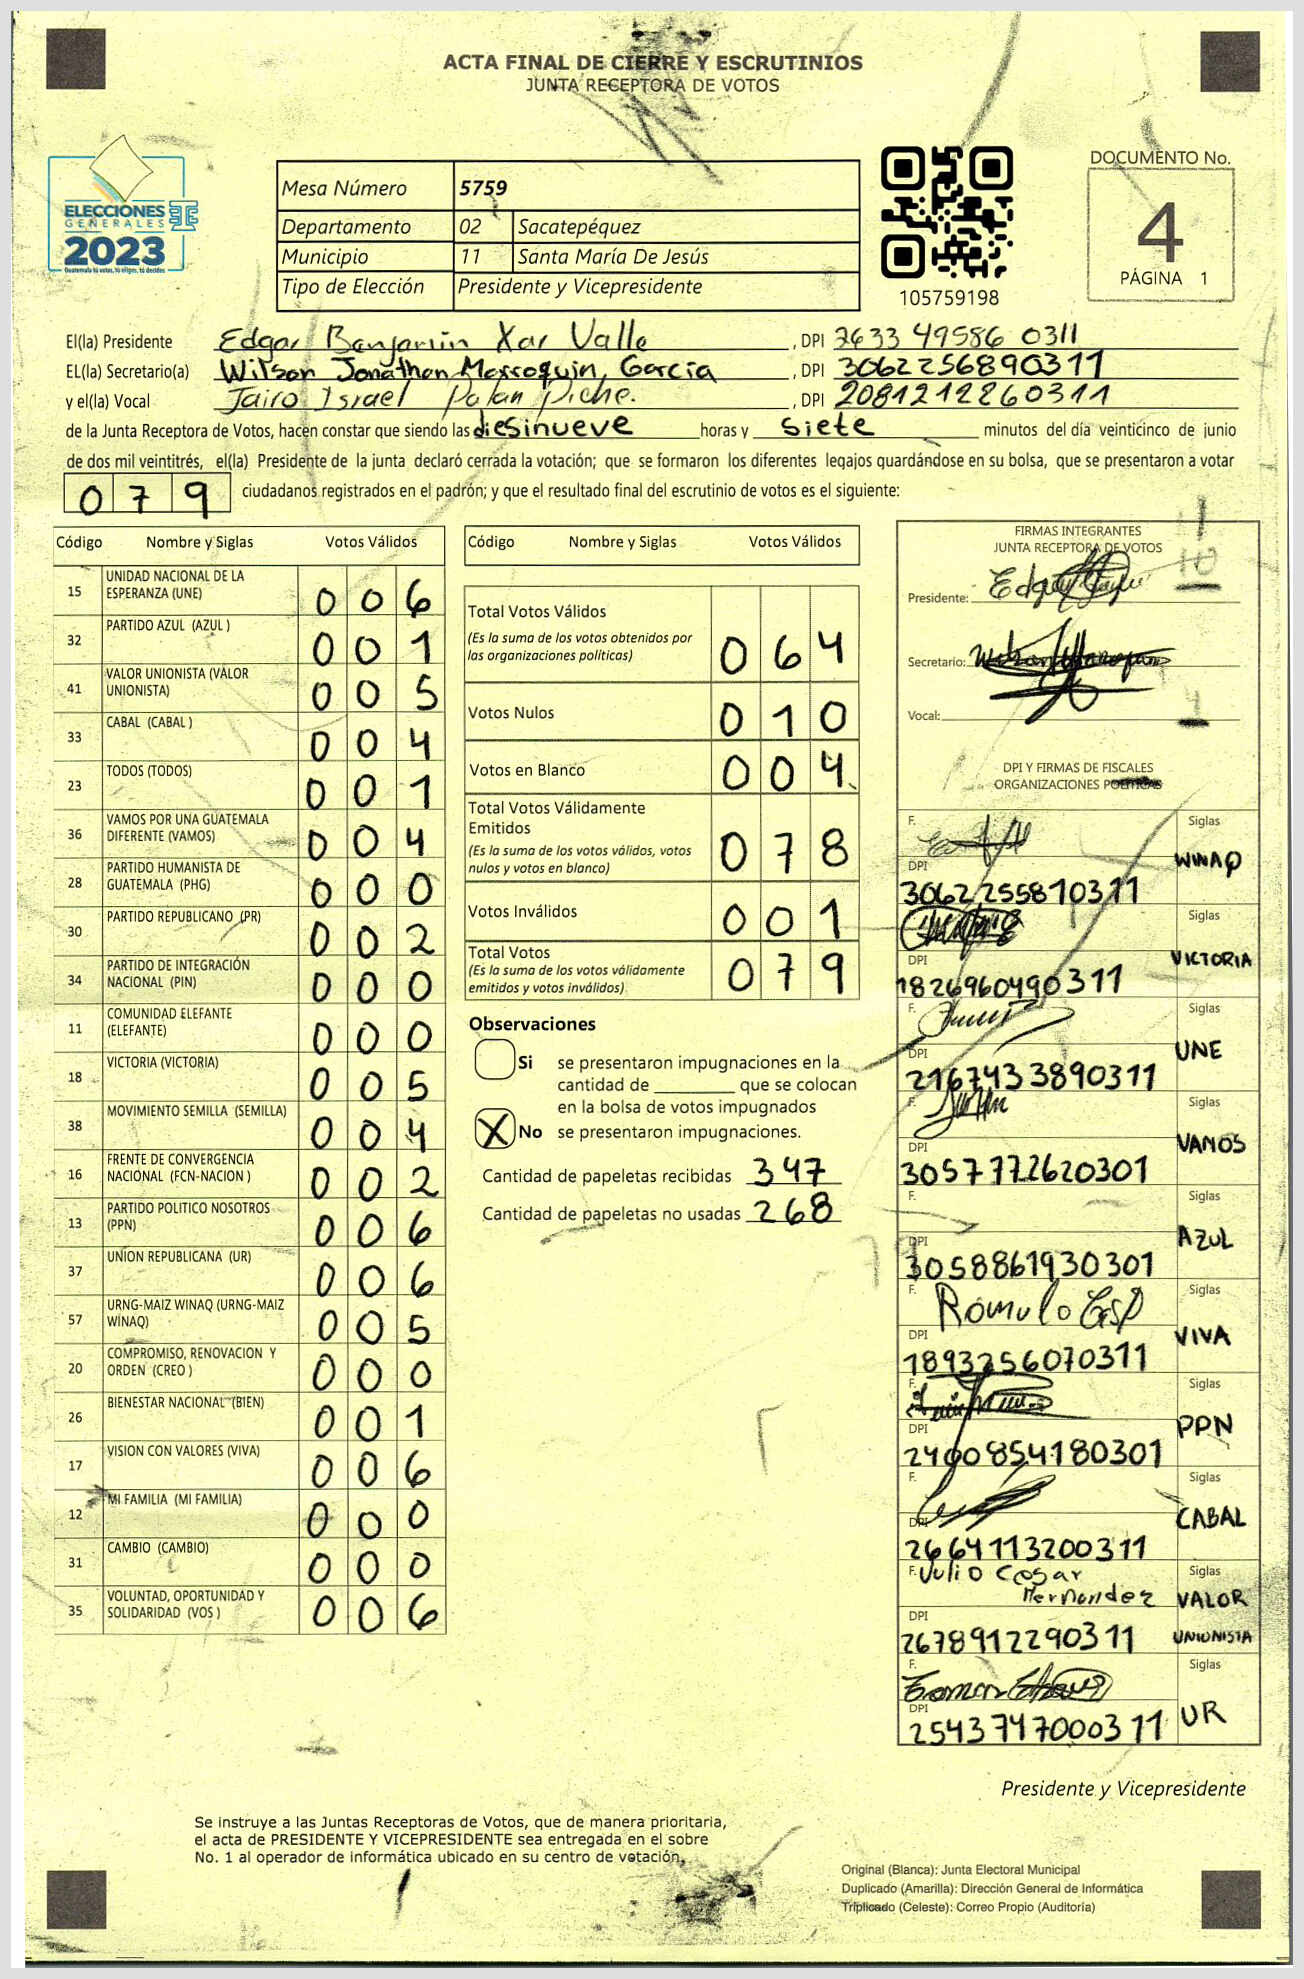 ACTA FINAL DE CIERRE Y ESCRUTINIOS
JUNTA RECEPTORA DE VOTOS
ELECCIONES
GENERALES
2023
Guatemala tú votas, tú eliges, tú decides
Mesa Número 5759
Departamento 02 Sacatepéquez
Municipio 11 Santa María De Jesús
Tipo de Elección Presidente y Vicepresidente
105759198
DOCUMENTO No.
4
PÁGINA 1
El(la) Presidente Edgar Benjamin Xar Valle, DPI 2633 49586 0311
EL(la) Secretario(a) Wilson Jonathan Marroquin Garcia, DPI 3062256890311
y el(la) Vocal Jairo Israel Patan Piche., DPI 2081212260311
de la Junta Receptora de Votos, hacen constar que siendo las diesinueve horas y siete minutos del día veinticinco de junio
de dos mil veintitrés, el(la) Presidente de la junta declaró cerrada la votación; que se formaron los diferentes legajos guardándose en su bolsa, que se presentaron a votar
079 ciudadanos registrados en el padrón; y que el resultado final del escrutinio de votos es el siguiente:
Código Nombre y Siglas Votos Válidos
15 UNIDAD NACIONAL DE LA ESPERANZA (UNE) 006
32 PARTIDO AZUL (AZUL ) 001
41 VALOR UNIONISTA (VALOR UNIONISTA) 005
33 CABAL (CABAL ) 004
23 TODOS (TODOS) 001
36 VAMOS POR UNA GUATEMALA DIFERENTE (VAMOS) 004
28 PARTIDO HUMANISTA DE GUATEMALA (PHG) 000
30 PARTIDO REPUBLICANO (PR) 002
34 PARTIDO DE INTEGRACIÓN NACIONAL (PIN) 000
11 COMUNIDAD ELEFANTE (ELEFANTE) 000
18 VICTORIA (VICTORIA) 005
38 MOVIMIENTO SEMILLA (SEMILLA) 004
16 FRENTE DE CONVERGENCIA NACIONAL (FCN-NACION ) 002
13 PARTIDO POLITICO NOSOTROS (PPN) 006
37 UNION REPUBLICANA (UR) 006
57 URNG-MAIZ WINAQ (URNG-MAIZ WINAQ) 005
20 COMPROMISO, RENOVACION Y ORDEN (CREO ) 000
26 BIENESTAR NACIONAL (BIEN) 001
17 VISION CON VALORES (VIVA) 006
12 MI FAMILIA (MI FAMILIA) 000
31 CAMBIO (CAMBIO) 000
35 VOLUNTAD, OPORTUNIDAD Y SOLIDARIDAD (VOS ) 006
Código Nombre y Siglas Votos Válidos
Total Votos Válidos 064
(Es la suma de los votos obtenidos por
las organizaciones políticas)
Votos Nulos 010
Votos en Blanco 004
Total Votos Válidamente
Emitidos 078
(Es la suma de los votos válidos, votos
nulos y votos en blanco)
Votos Inválidos 001
Total Votos 079
(Es la suma de los votos válidamente
emitidos y votos inválidos)
Observaciones
Si se presentaron impugnaciones en la
cantidad de ________ que se colocan
en la bolsa de votos impugnados
X No se presentaron impugnaciones.
Cantidad de papeletas recibidas 347
Cantidad de papeletas no usadas 268
FIRMAS INTEGRANTES
JUNTA RECEPTORA DE VOTOS
Presidente:
Secretario:
Vocal:
DPI Y FIRMAS DE FISCALES
ORGANIZACIONES POLÍTICAS
F. Siglas
WINAQ
DPI
3062255810311
F. Siglas
VICTORIA
DPI
1826960490311
F. Siglas
UNE
DPI
2167433890311
F. Siglas
VAMOS
DPI
3057772620301
F. Siglas
AZUL
DPI
3058861930301
F. Romulo Siglas
VIVA
DPI
1893256070311
F. Siglas
PPN
DPI
2400854180301
F. Siglas
CABAL
DPI
2664113200311
F. Julio Cesar Siglas
Hernandez VALOR
DPI
2678912290311 UNIONISTA
F. Siglas
UR
DPI
2543747000311
Presidente y Vicepresidente
Se instruye a las Juntas Receptoras de Votos, que de manera prioritaria,
el acta de PRESIDENTE Y VICEPRESIDENTE sea entregada en el sobre
No. 1 al operador de informática ubicado en su centro de votación.
Original (Blanca): Junta Electoral Municipal
Duplicado (Amarilla): Dirección General de Informática
Triplicado (Celeste): Correo Propio (Auditoría)